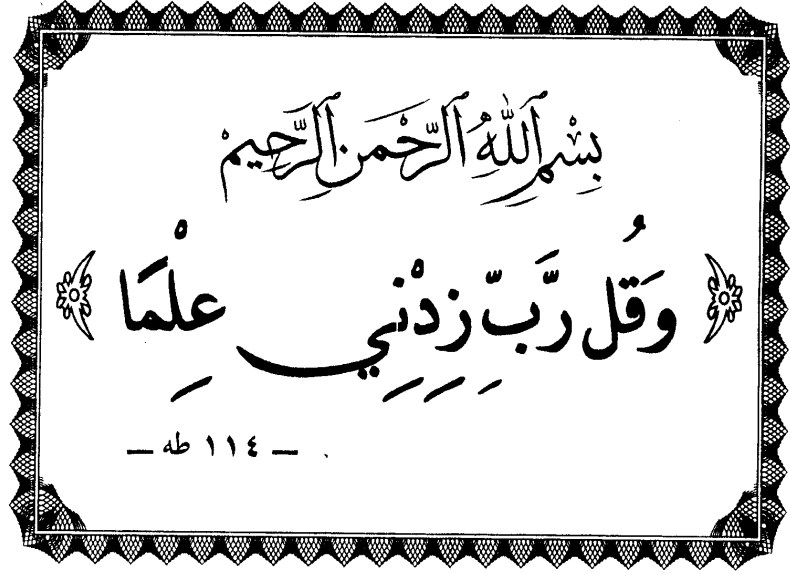 بِسْمِ اللَّهِ الرَّحْمَنِ الرَّحِيمِ
﴿ وَقُل رَّبِّ زِدْنِي عِلْمًا ﴾
— ١١٤ طه —